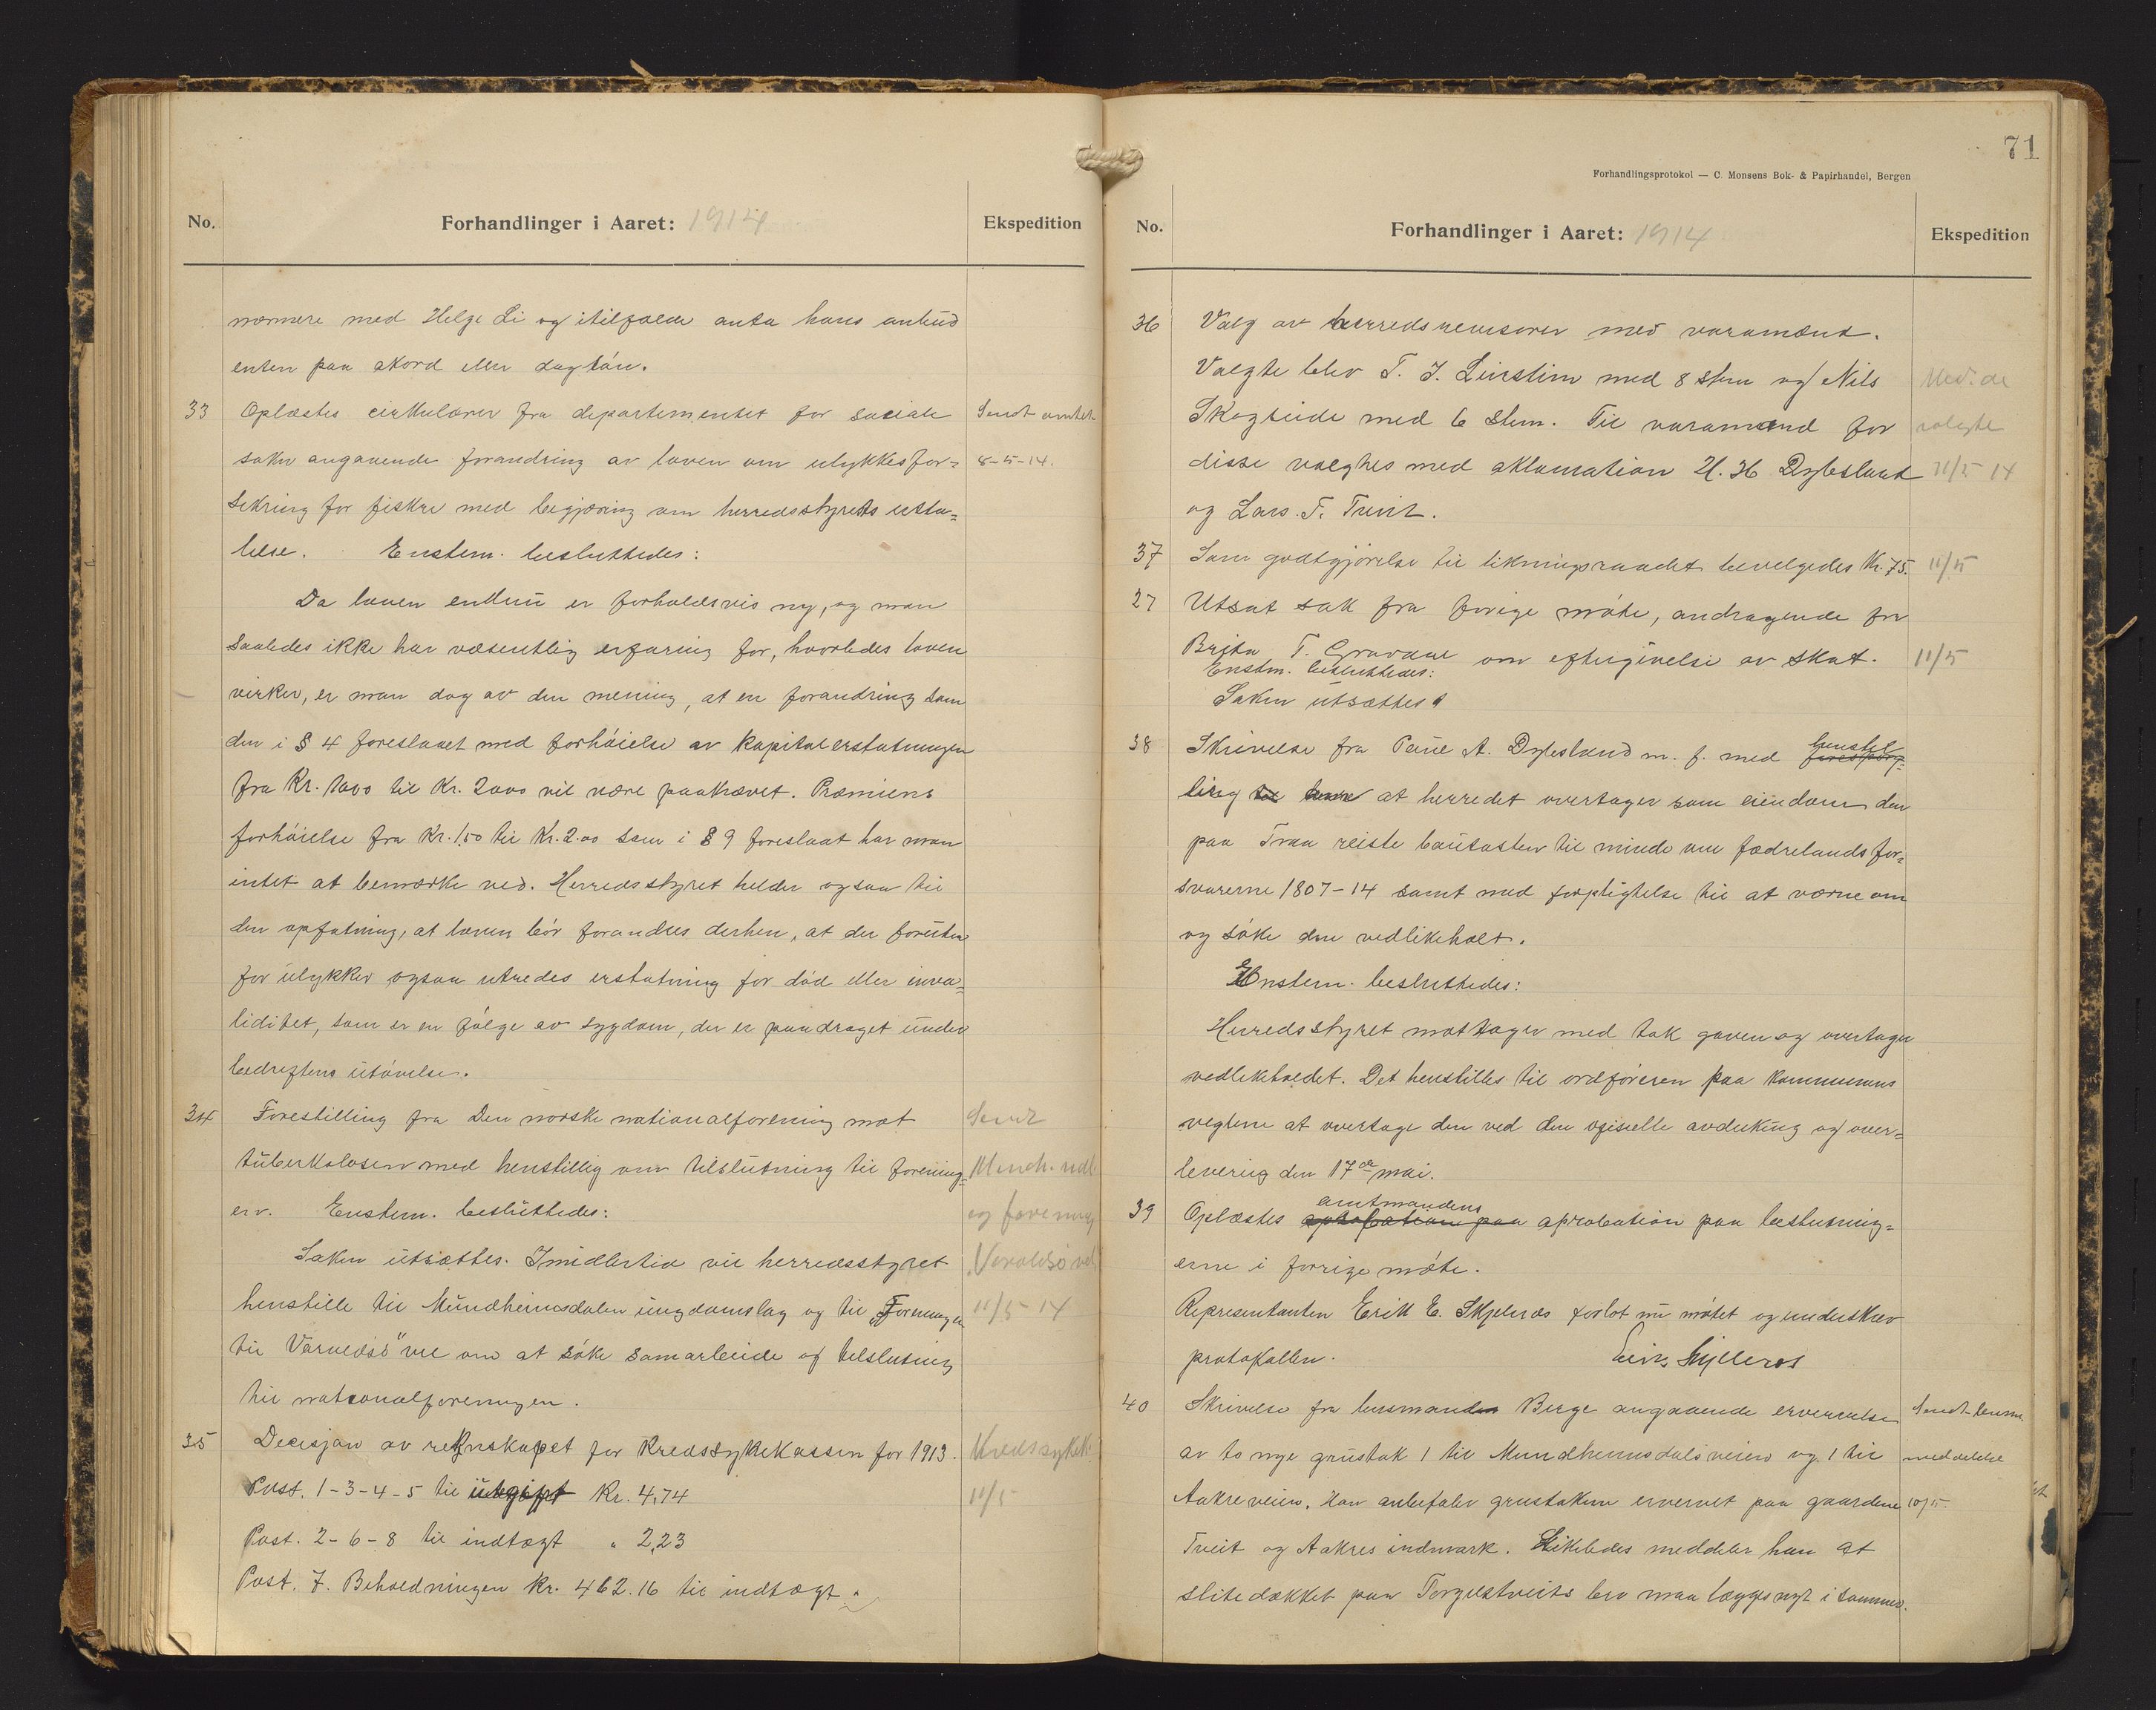 No.
Forhandlinger i Aaret: 1914
Ekspedition
nærmere med Helge Li og itilfælde anta hans anbud
enten paa akord eller daglön.
33 Oplæstes cirkulærer fra departementet for sociale Sendt amtet
saker angaaende forandring av loven om ulykkesfor= 8-5-14.
sikring for fiskere med begjæring om herredsstyrets utta=
lelse. Enstem. besluttedes:
Da loven endnu er forholdsvis ny, og man
saaledes ikke har væsentlig erfaring for, hvorledes loven
virker, er man dog av den mening, at en forandring som
den i § 4 foreslaaet med forhöielse av kapitalerstatningen
fra Kr. 1000 til Kr. 2000 vil være paakrævet. Præmiens
forhöielse fra Kr. 1,50 til Kr. 2.00 som i § 9 foreslaat har man
intet at bemærke ved. Herredsstyret helder ogsaa til
den opfatning, at loven bör forandres derhen, at der foruten
for ulykker ogsaa utredes erstatning for död eller inva=
liditet, som er en fölge av sygdom, der er paadraget under
bedriftens utövelse.
34 Forestilling fra Den norske nationalforening mot Sendt
tuberkulosen med henstillig om tilslutning til forening= Mundh. udl.
en. Enstem. besluttedes: og forening
Saken utsættes. Imidlertid vil herredsstyret Varaldsö vel
henstille til Mundheimsdalen ungdomslag og til „Foreningen 11/5 14
til Varaldsö" vel om at söke samarbeide og tilslutning
til nationalforeningen.
35 Decisjon av regnskapet for Kredssykekassen for 1913. Kredssykek.
Post. 1-3-4-5 til utgift Kr. 4,74 11/5
Post. 2-6-8 til indtægt " 2,23
Post. 7. Beholdningen Kr. 462.16 til indtægt.
71
Forhandlingsprotokol — C. Monsens Bok- & Papirhandel, Bergen
No.
Forhandlinger i Aaret: 1914
Ekspedition
36 Valg av herredsrevisorer med varamænd.
Valgte blev T. J. Linstim med 8 stem og Nils Med. de
Skogseide med 6 stem. Til varamænd for valgte
disse valgtes med aklamation H. H. Dyresland 11/5 14
og Lars T. Tveit.
37 Som godtgjörelse til likningsraadet bevilgedes Kr. 75. 11/5
27 Utsat sak fra forige möte, andragende fra
Brita T. Gravdal om eftergivelse av skat. 11/5
Enstm. besluttedes:
Saken utsættes
38 Skrivelse fra Paul A. Dyresland m. f. med forespörg= henstil
ling at herredet overtager som eiendom den
paa Traa reiste bautasten til minde om fædrelandsfor=
svarerne 1807-14 samt med forpligtelse til at værne om
og söke den vedlikeholt.
Enstem. besluttedes:
Herredsstyret mottager med tak gaven og overtager
vedlikeholdet. Det henstilles til ordföreren paa kommunens
vegne at overtage den ved den ofisielle avduking og over=
levering den 17de mai.
amtmandens
39 Oplæstes aprobation paa aprobation paa beslutning=
erne i forrige möte.
Representanten Erik E. Skjelnes forlot nu mötet og underskrev
protokollen.
40 Skrivelse fra lensmanden Berge angaaende ervervelse Sendt lensm.
av to nye grustak 1 til Mundheimsdalsveien og 1 til meddelelse
Aakreveien. Han anbefaler grustakene ervervet paa gaardene 10/5
Tveit og Aakres indmark. Likeledes meddeler han at
slitedækket paa Torgilstveits bro maa lægges nyt i sommer.